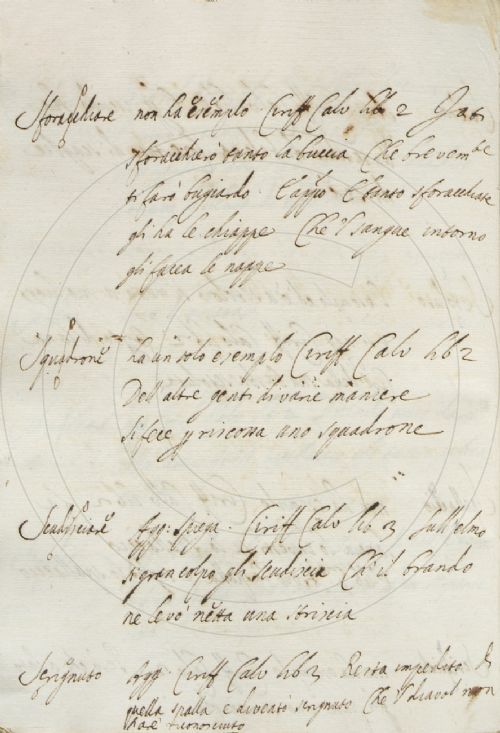 Sforacchiare non ha esemplo. Ciriff Calv lib 2 Io ti
sforacchierò tanto la buccia Che brevem.te
ti farò bugiardo. E appo E tanto sforacchiate
gli ha le chiappe Che 'l sangue intorno
gli facea le nappe
Squadrone ha un solo esemplo Ciriff Calv lib 2
Dell'altre genti di varie maniere
si fece p riscossa uno squadrone
Scudisciare Agg: spiega. Ciriff Calv lib 3 sull'elmo
si gran colpo gli scudiscia Ch'il brando
ne levò netta una striscia
Scrignuto Agg. Ciriff Calv lib 3 Resta impedito di
quella spalla e diventò scrignuto Che 'l diavol non
riconosciuto